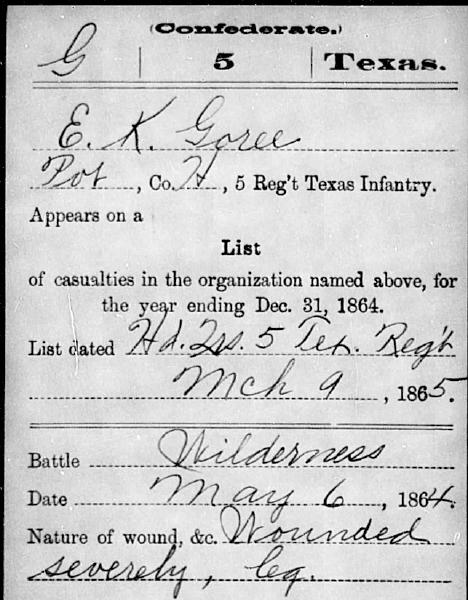 (Confederate.)
G | 5 | Texas.
E. K. Goree
Pvt, Co. H, 5 Reg't Texas Infantry.
Appears on a
List
of casualties in the organization named above, for
the year ending Dec. 31, 1864.
List dated Hd. Qrs. 5 Tex. Reg't
Mch 9, 1865.
Battle Wilderness
Date May 6, 1864.
Nature of wound, &c. Wounded
severely, leg.